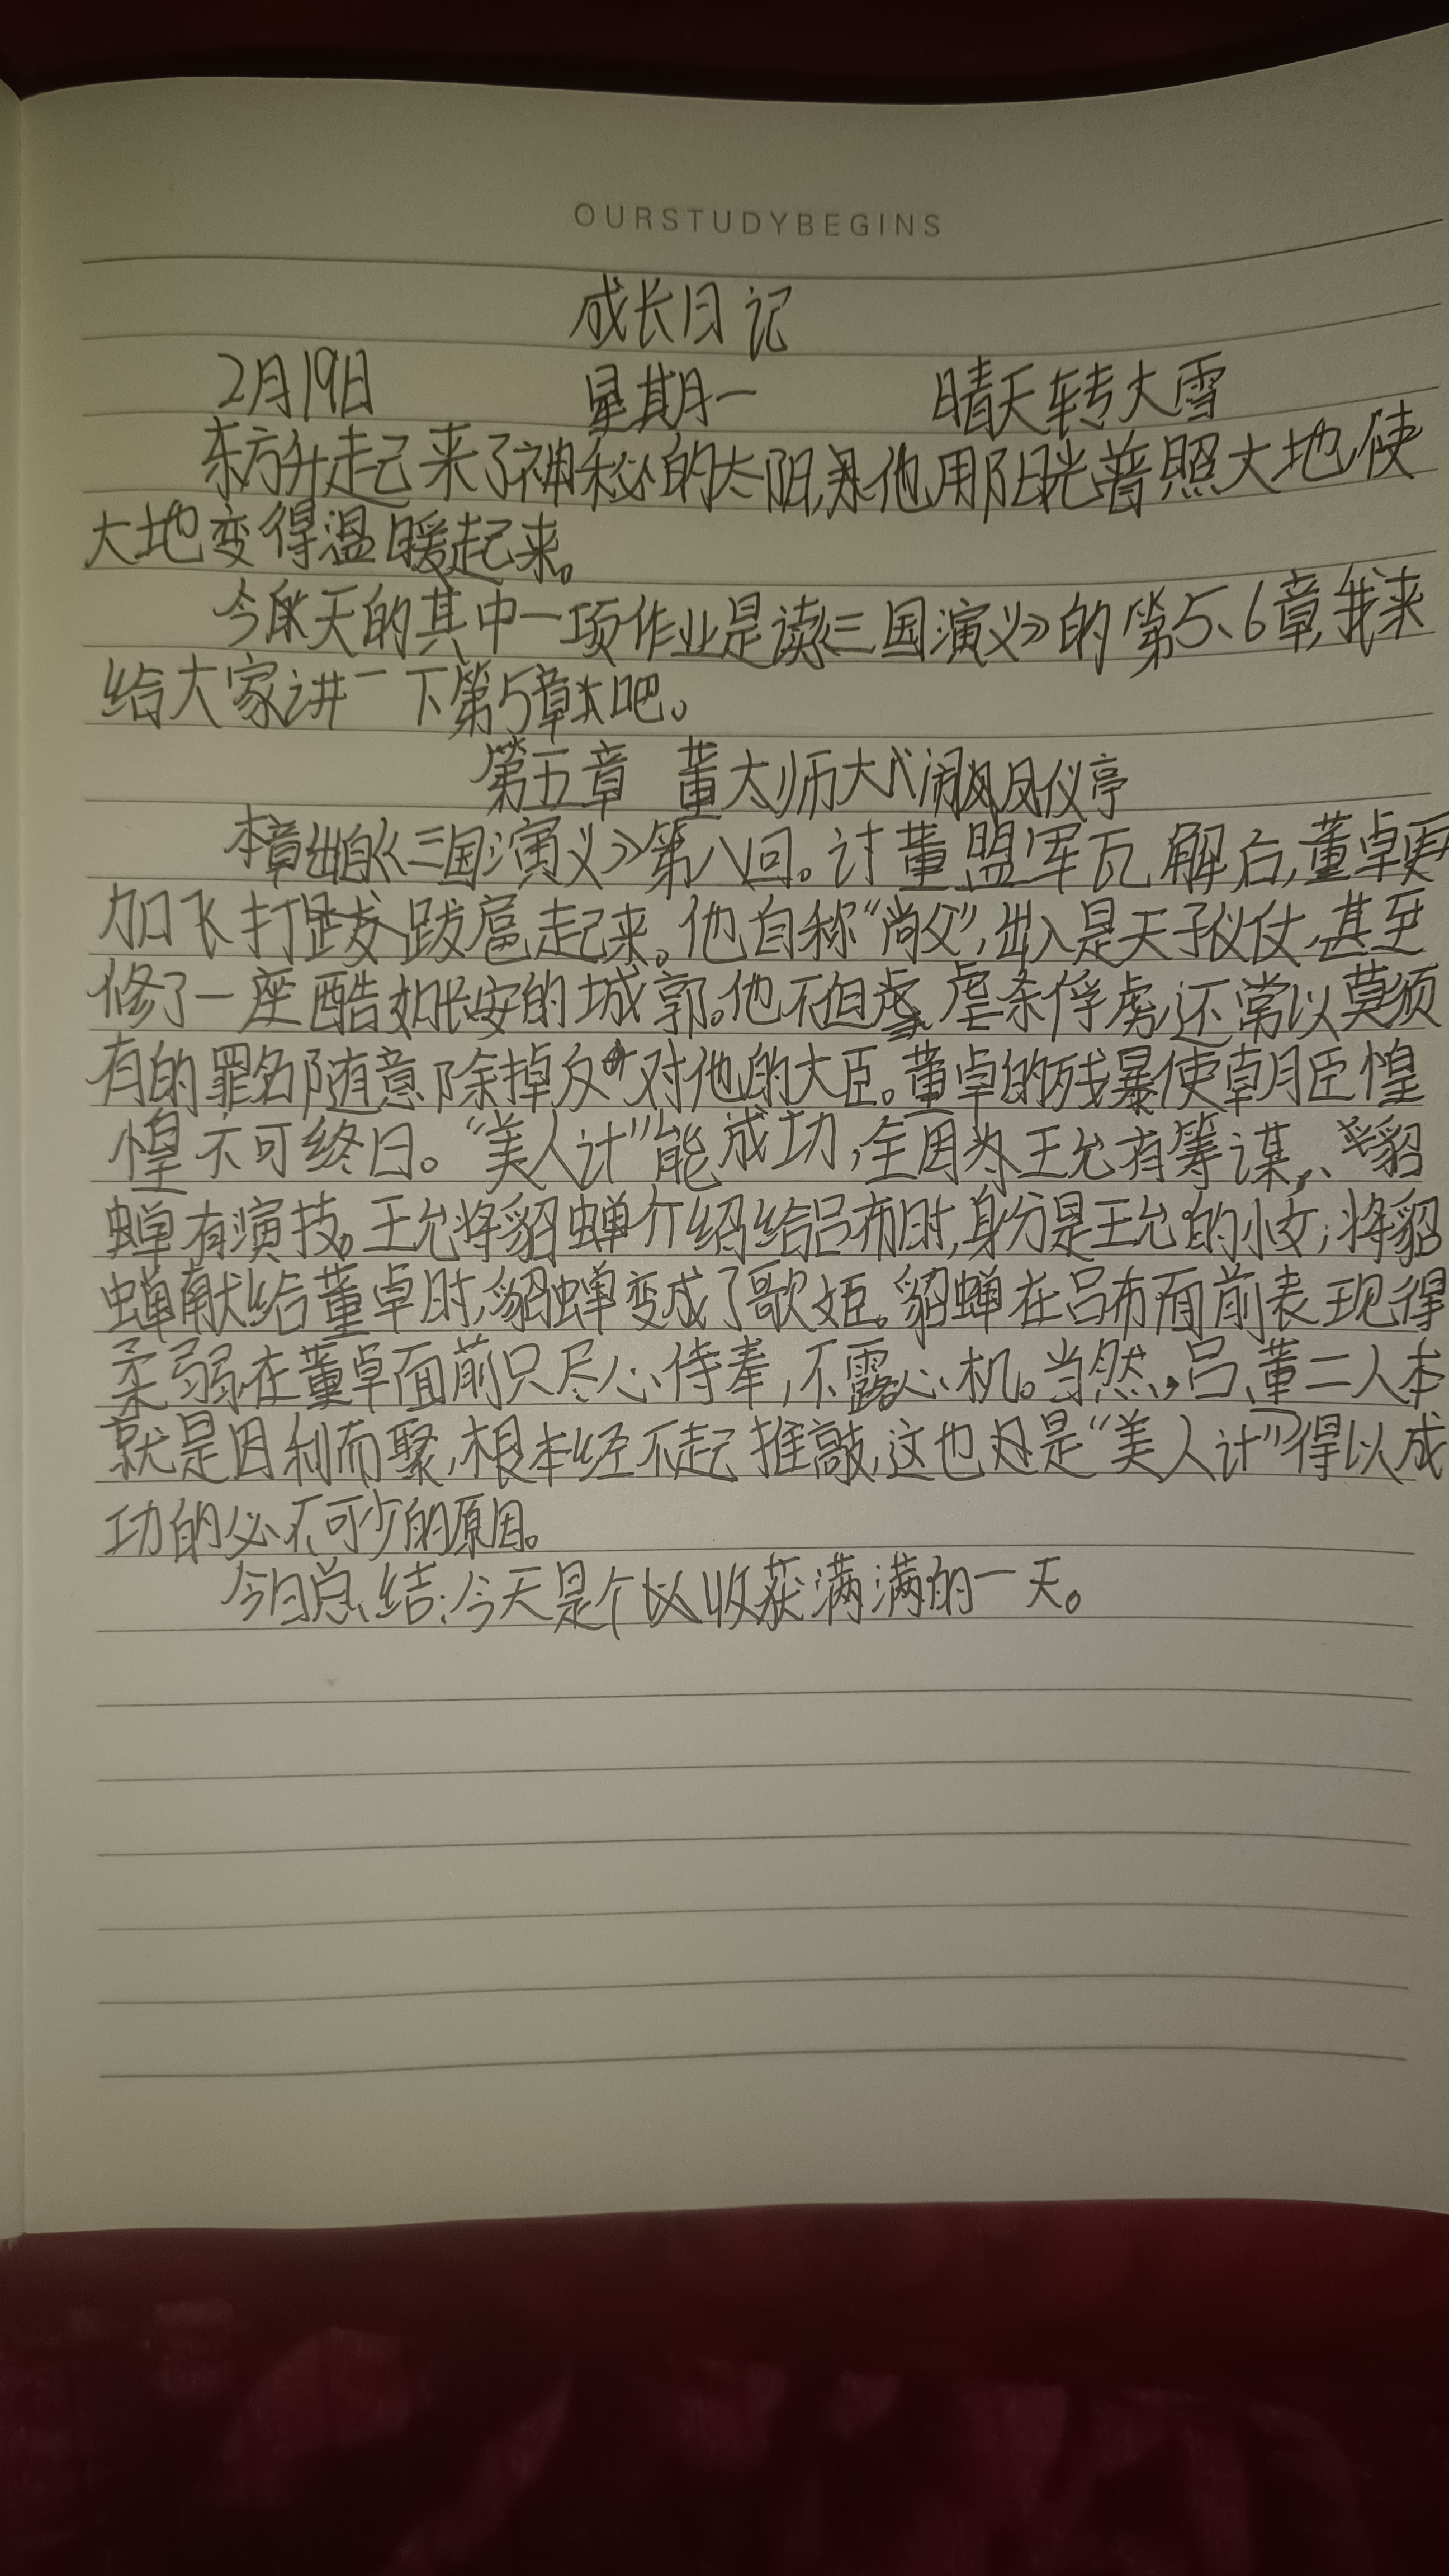 OURSTUDYBEGINS
成长日记
2月19日 星期一 晴天转大雪
东方升起来了神秘的太阳,是他用阳光普照大地,使
大地变得温暖起来。
今天的其中一项作业是读《三国演义》的第5、6章,我来
给大家讲一下第5章吧。
第五章 董太师大闹凤仪亭
本章出自《三国演义》第八回。讨董盟军瓦解后,董卓更
加飞打跋扈起来。他自称“尚父”,出入是天子仪仗,甚至
修了一座酷如长安的城郭。他不但虐杀俘虏,还常以莫须
有的罪名随意除掉反对他的大臣。董卓的残暴使朝臣惶
惶不可终日。“美人计”能成功,全因为王允有等谋、貂
蝉有演技。王允将貂蝉介绍给吕布时,身分是王允的小女;将貂
蝉献给董卓时,貂蝉变成了歌姬。貂蝉在吕布面前表现得
柔弱,在董卓面前只尽心侍奉,不露心机。当然,吕、董二人本
就是因利而聚,根本经不起推敲,这也是“美人计”得以成
功的必不可少的原因。
今日总结:今天是个收获满满的一天。